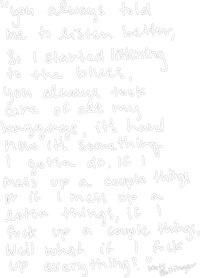 "you always told
me to listen better,
So I started listening
to the blues,
you always took
care of all my
hungyness, it's hard
now it's something
I gotta do, if I
mess up a couple things
or if I mess up a
lotta things, if I
fuck up a couple things,
well what if I fuck
up everything?"